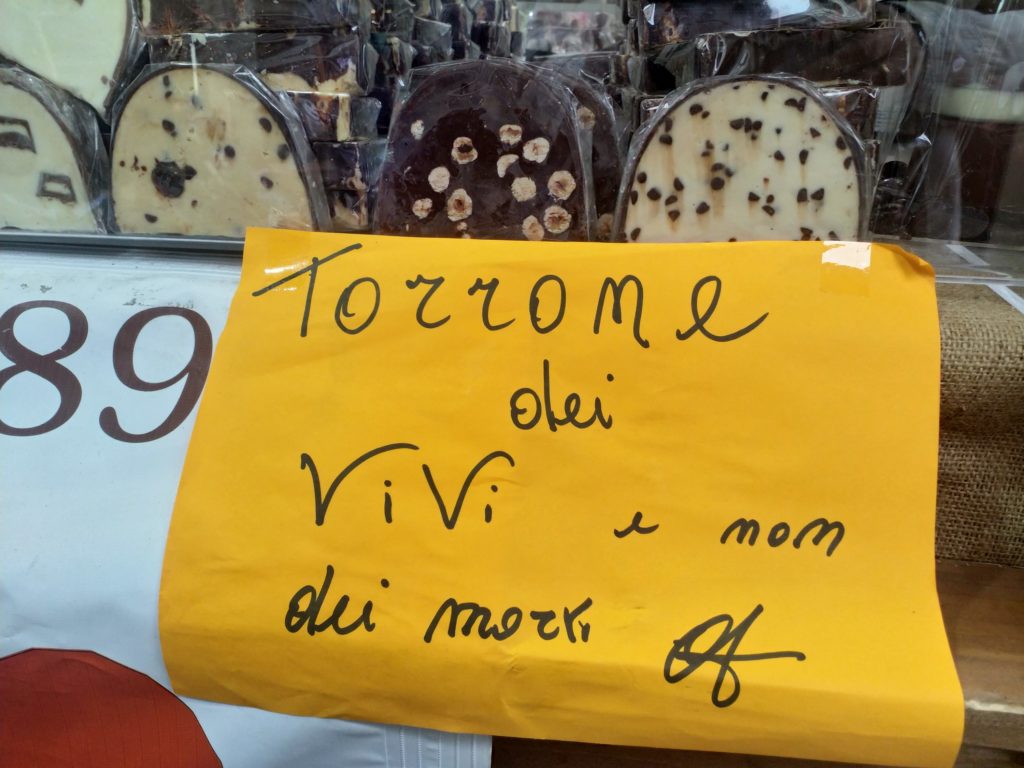 89
Torrone
dei
ViVi e non
dei morti